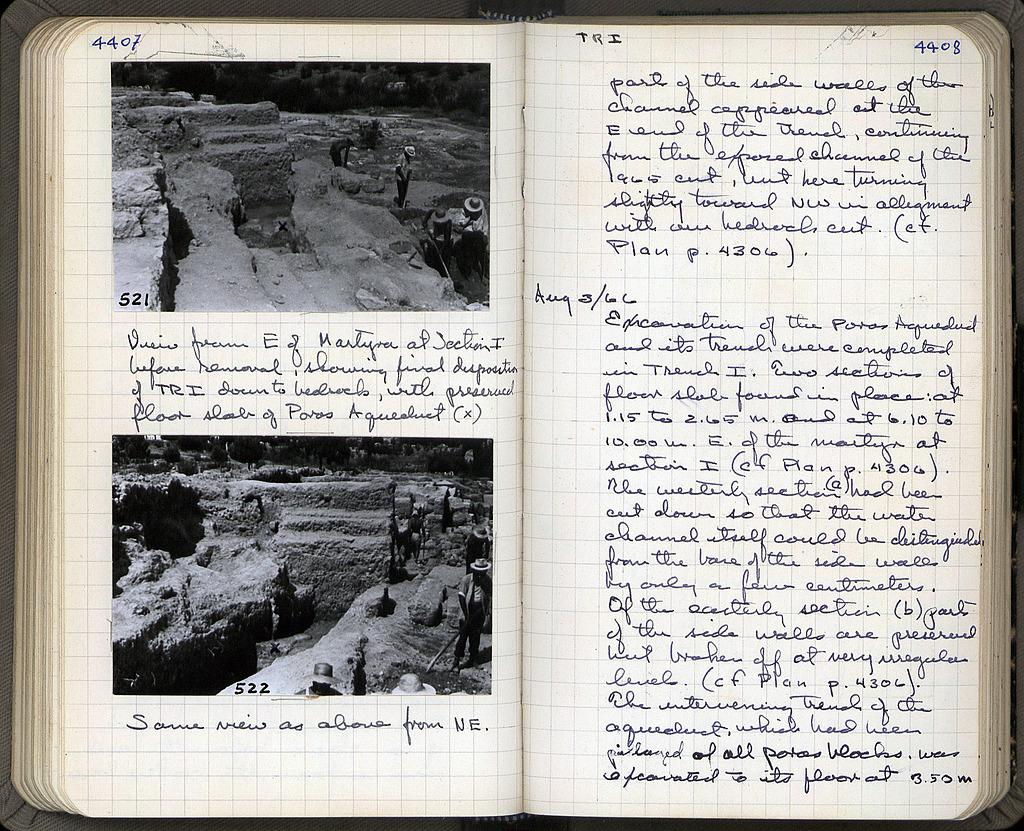 4407
521
View from E of Martyra at Section I
before removal, showing final disposition
of TRI down to bedrock, with preserved
floor slab of Poros Aqueduct (x)
x
522
x
Same view as above from NE.
TRI
4408
part of the side walls of the
channel appeared at the
E end of the trench, continuing
from the exposed channel of the
1965 cut, but here turning
slightly toward NW in allegment
with our bedrock cut. (cf.
Plan p. 4306).
Aug 3/66
Excavation of the Poros Aqueduct
and its trench were completed
in Trench I. Two sections of
floor slab found in place: at
1.15 to 2.65 m. and at 6.10 to
10.00 m. E. of the martyr at
section I (cf Plan p. 4306).
The westerly section (a) had been
cut down so that the water
channel itself could be distinguished
from the base of the side walls
by only a few centimeters.
Of the easterly section (b) parts
of the side walls are preserved
but broken off at very irregular
levels. (cf Plan p. 4306).
The intervening trench of the
aqueduct, which had been
pillaged of all poros blocks, was
excavated to its floor at 3.50 m